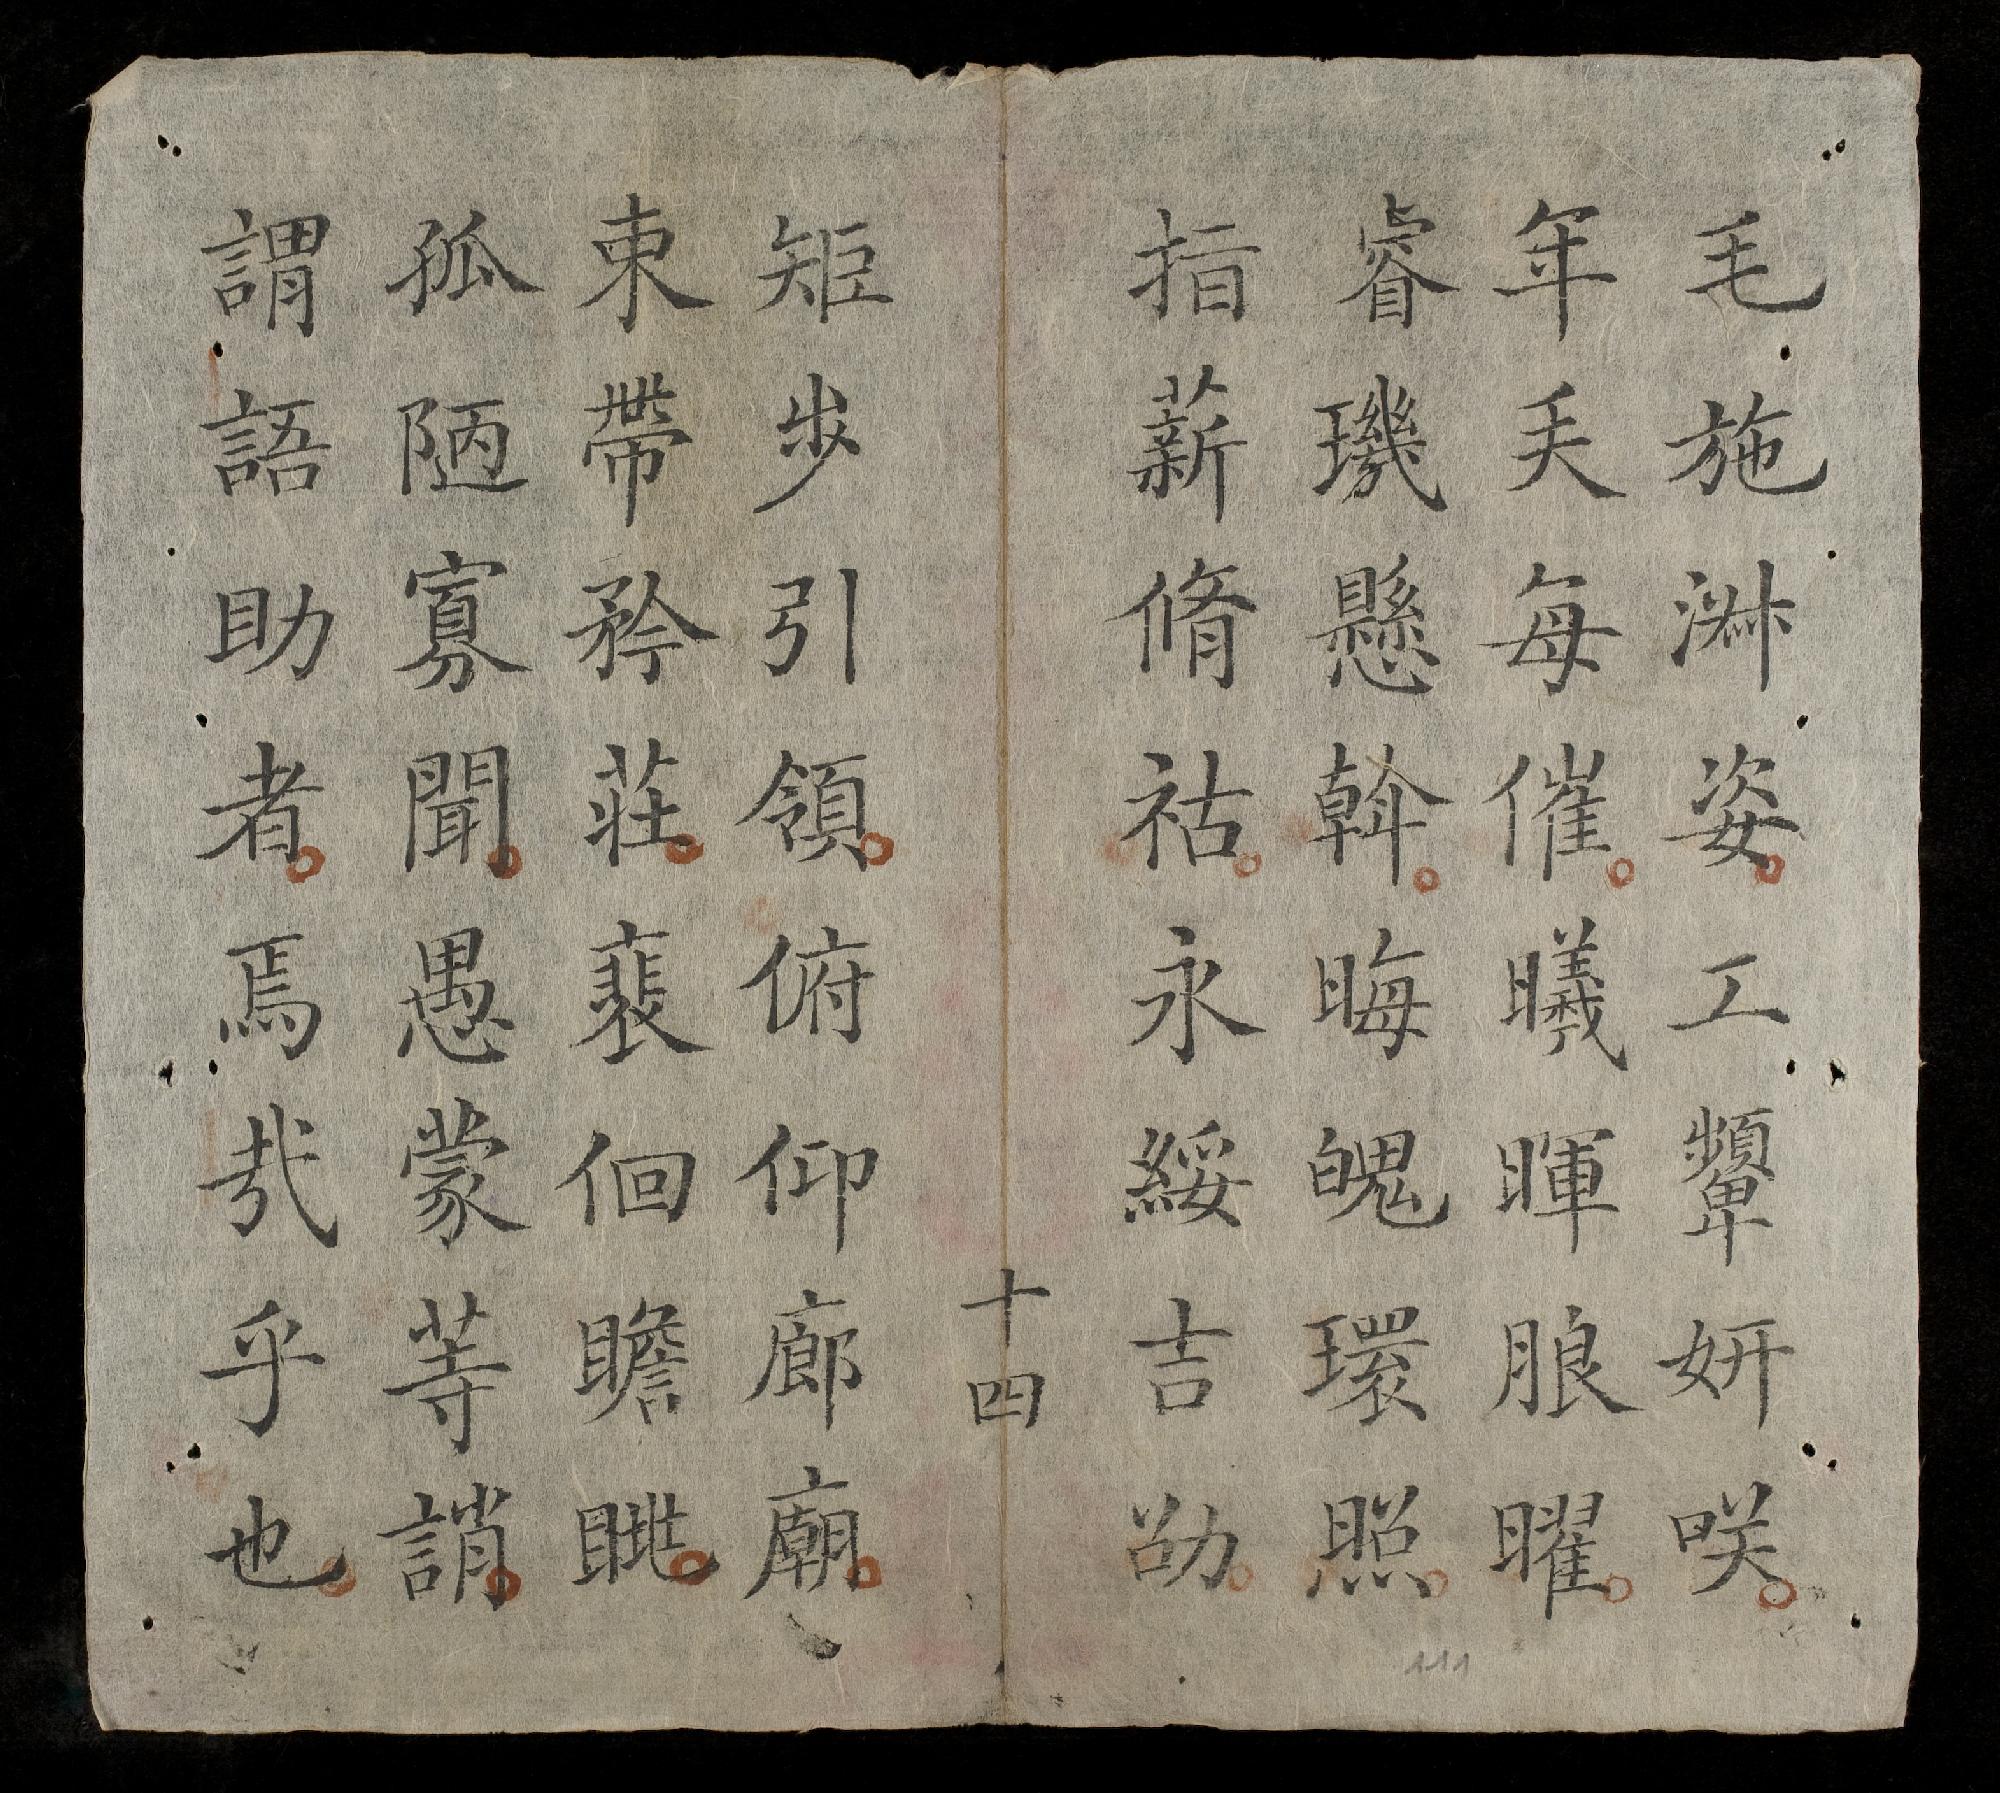 毛施淑姿工顰妍咲
年矢每催曦暉朖曜
睿璣懸斡晦魄環照
指薪脩祜永綏吉劭
十四
矩步引領俯仰廊廟
束帶矜莊裴佪瞻眺
孤陋寡聞愚蒙等誚
謂語助者焉哉乎也
111